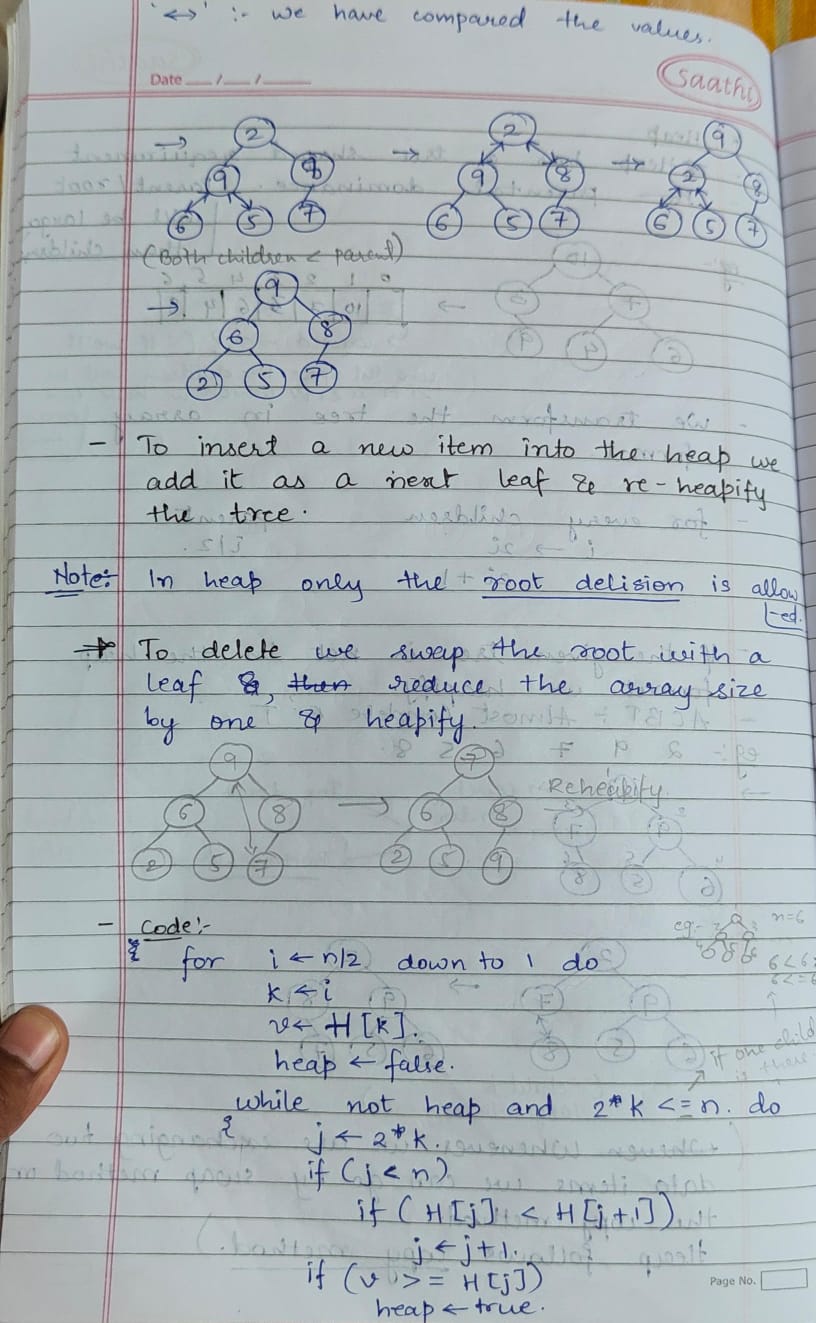 '<->' :- we have compared the values.
Date __/__/__
Saathi
→ 2 → 2 → 9
9 8 9 8 2 8
6 5 7 6 5 7 6 5 7
(Both children < parent)
→ 9
6 8
2 5 7
- To insert a new item into the heap we
add it as a next leaf & re-heapify
the tree.
Note:- In heap only the root delision is allow
-ed.
→ To delete we swap the root with a
leaf &, then reduce the array size
by one & heapify.
9 → 7
6 8 6 8 Reheapify
2 5 7 2 5 9
- Code:-
eg:- n=6
{ for i ← n/2 down to 1 do
6<6
k ← i
v ← H[k].
heap ← false.
if one child
while not heap and 2*k <= n. do
{ j ← 2*k.
if (j < n)
if (H[j] < H[j+1])
j ← j+1.
if (v >= H[j])
heap ← true.
Page No.